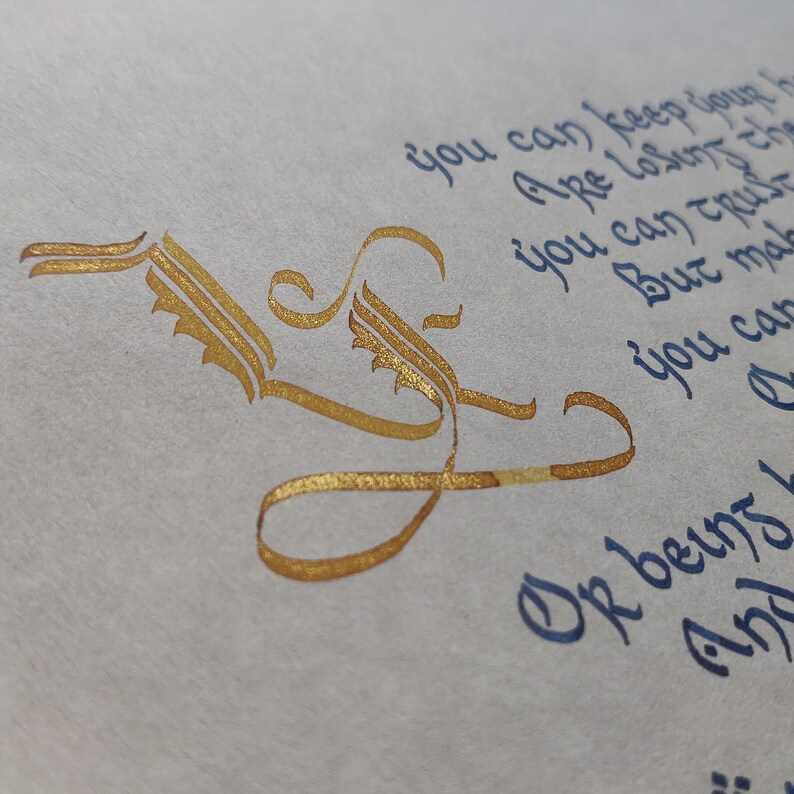 you can keep your h
Are losing the
you can trust
But mak
you can
Or being
And